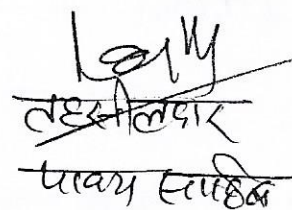 तहसीलदार
पांवटा साहिब